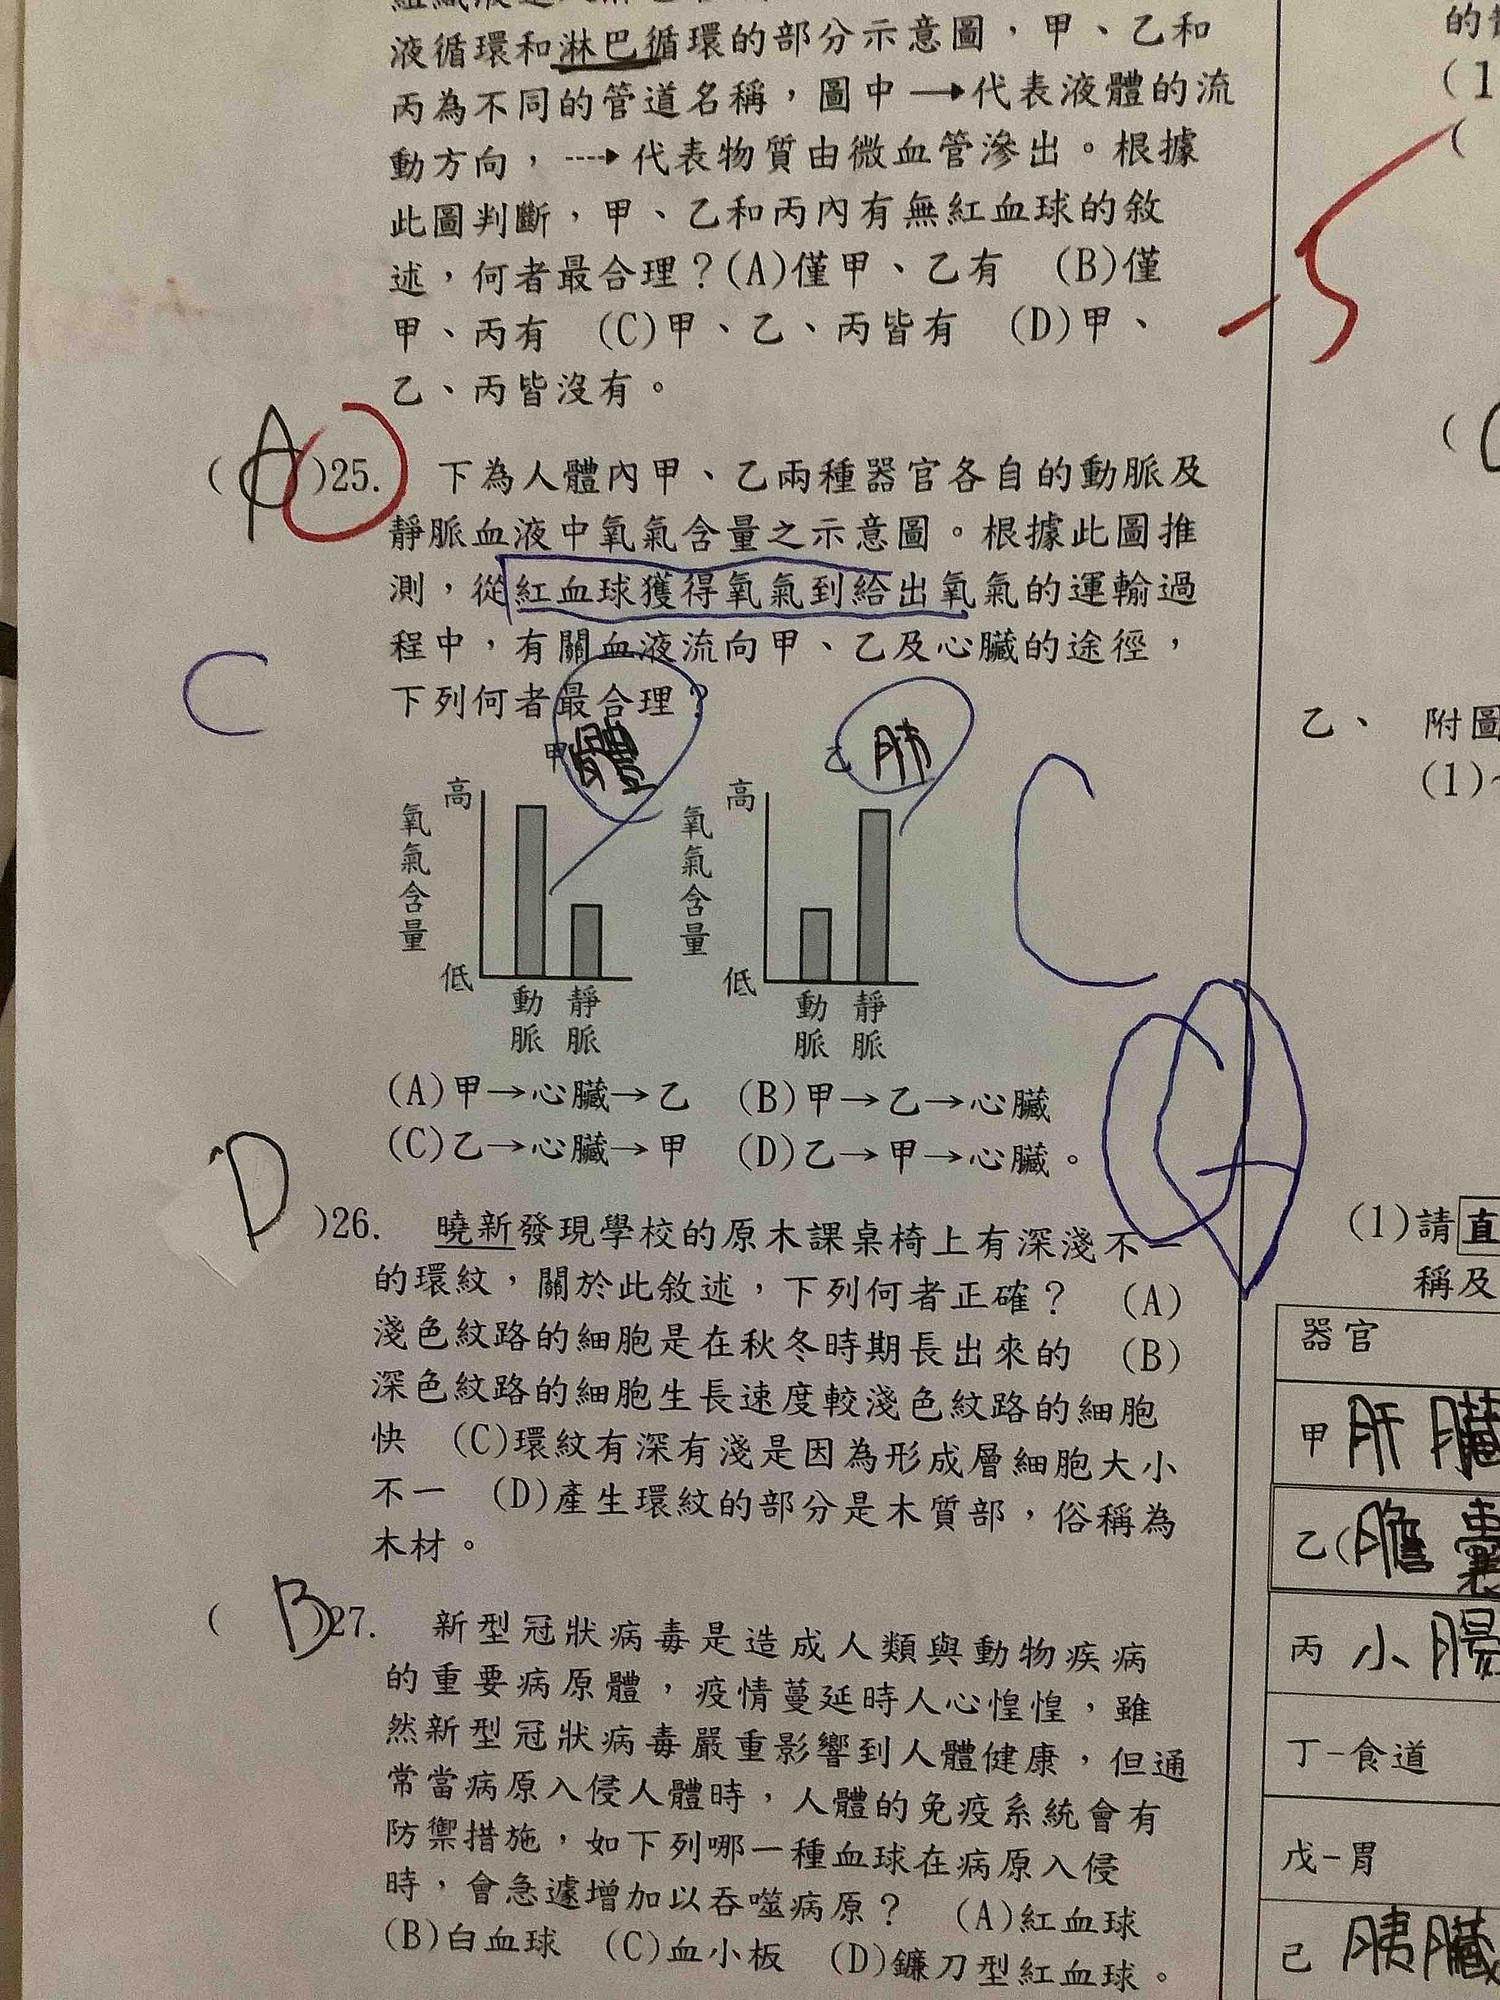 液循環和淋巴循環的部分示意圖，甲、乙和
丙為不同的管道名稱，圖中→代表液體的流
動方向，⇢代表物質由微血管滲出。根據
此圖判斷，甲、乙和丙內有無紅血球的敘
述，何者最合理？(A)僅甲、乙有 (B)僅
甲、丙有 (C)甲、乙、丙皆有 (D)甲、
乙、丙皆沒有。
(A)25. 下為人體內甲、乙兩種器官各自的動脈及
靜脈血液中氧氣含量之示意圖。根據此圖推
測，從紅血球獲得氧氣到給出氧氣的運輸過
程中，有關血液流向甲、乙及心臟的途徑，
C
下列何者最合理？
甲
乙 肺
高
氧氣含量
低
動脈
靜脈
高
氧氣含量
低
動脈
靜脈
C
(A)甲→心臟→乙 (B)甲→乙→心臟
(C)乙→心臟→甲 (D)乙→甲→心臟。
D )26. 曉新發現學校的原木課桌椅上有深淺不一
的環紋，關於此敘述，下列何者正確？ (A)
淺色紋路的細胞是在秋冬時期長出來的 (B)
深色紋路的細胞生長速度較淺色紋路的細胞
快 (C)環紋有深有淺是因為形成層細胞大小
不一 (D)產生環紋的部分是木質部，俗稱為
木材。
( B)27. 新型冠狀病毒是造成人類與動物疾病
的重要病原體，疫情蔓延時人心惶惶，雖
然新型冠狀病毒嚴重影響到人體健康，但通
常當病原入侵人體時，人體的免疫系統會有
防禦措施，如下列哪一種血球在病原入侵
時，會急遽增加以吞噬病原？ (A)紅血球
(B)白血球 (C)血小板 (D)鐮刀型紅血球。
的
(1
(
(
乙、 附圖
(1)~
(1)請直
稱及
器官
甲 肝臟
乙(膽囊
丙 小腸
丁-食道
戊-胃
己 胰臟